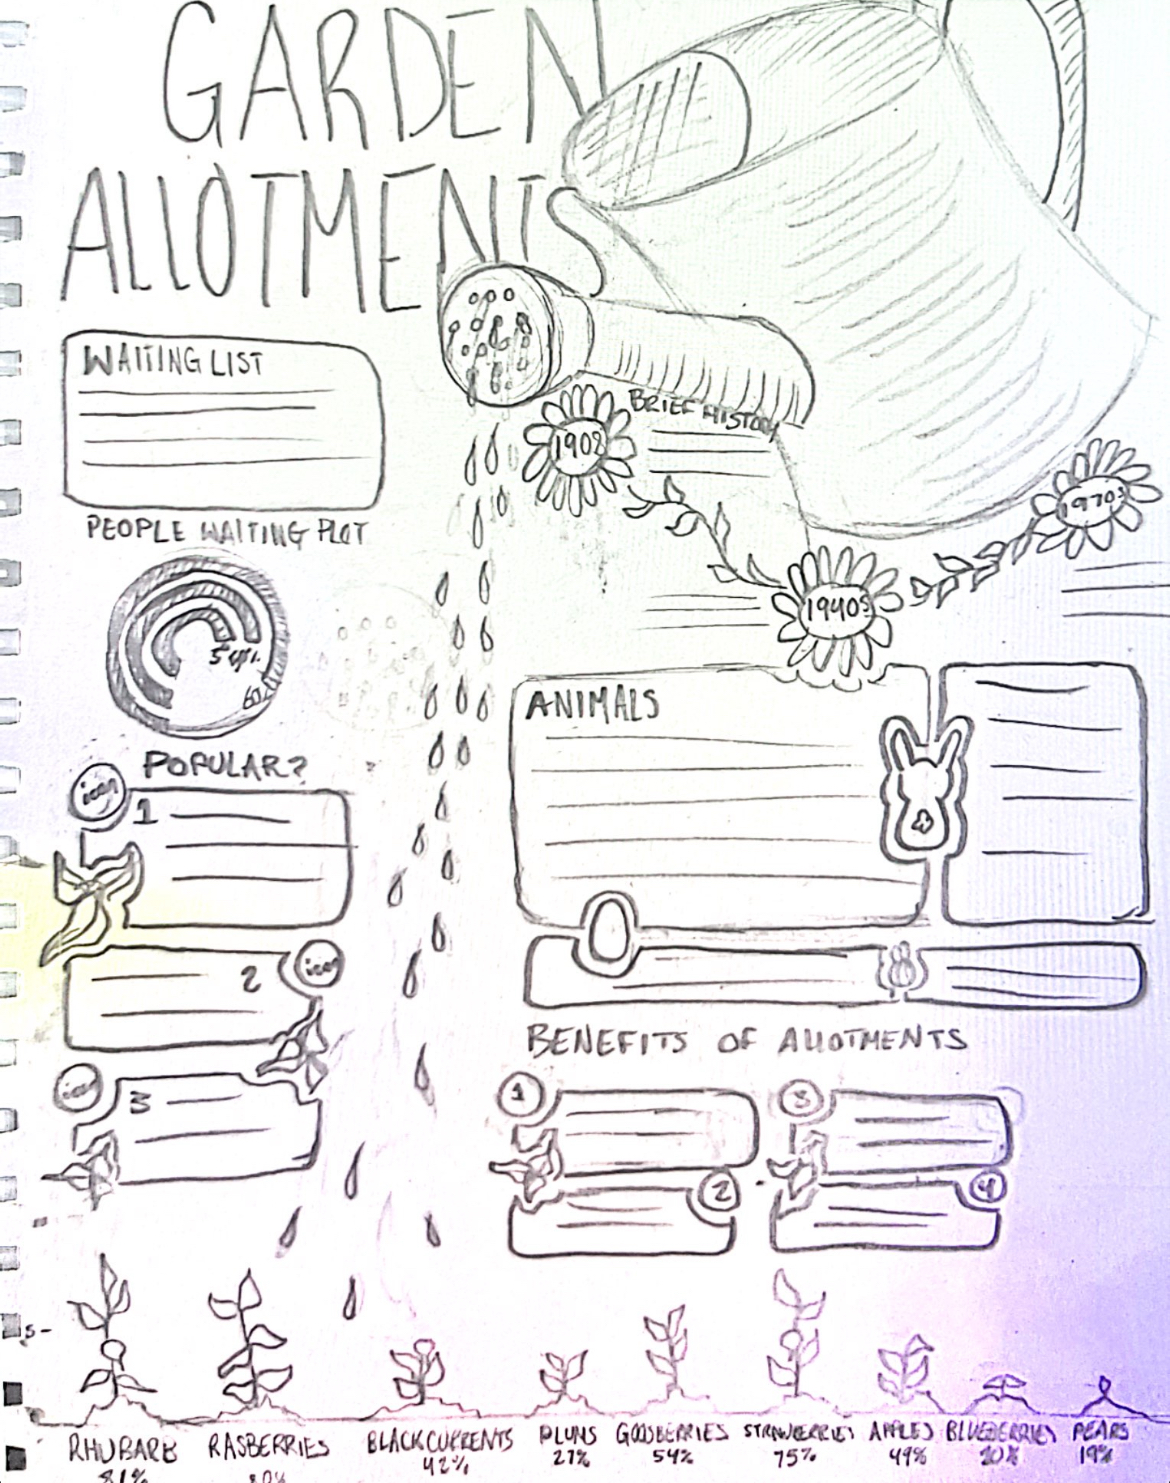 GARDEN
ALLOTMENTS
WAITING LIST
BRIEF HISTORY
1908
1970s
1940s
PEOPLE WAITING PLOT
54%
POPULAR?
icon
1
2
icon
icon
3
ANIMALS
BENEFITS OF ALLOTMENTS
1
3
2
4
5-
RHUBARB
81%
RASBERRIES
80%
BLACKCURRENTS
42%
PLUMS
27%
GOOSBERRIES
54%
STRAWBERRIES
75%
APPLES
49%
BLUEBERRIES
20%
PEARS
19%